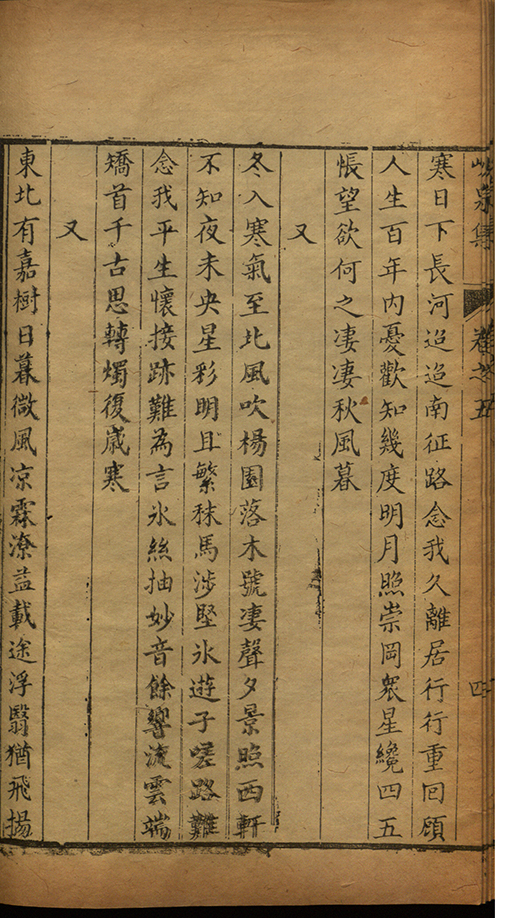 峴泉集 卷之五 四
寒日下長河迢迢南征路念我久離居行行重回顧
人生百年內憂歡知幾度明月照崇岡眾星纔四五
悵望欲何之凄凄秋風暮
又
冬入寒氣至北風吹楊園落木號凄聲夕景照西軒
不知夜未央星彩明且繁秣馬涉堅氷遊子嗟路難
念我平生懷接跡難為言氷絲抽妙音餘響流雲端
矯首千古思轉燭復歲寒
又
東北有嘉樹日暮微風凉霖潦益載途浮翳猶飛揚